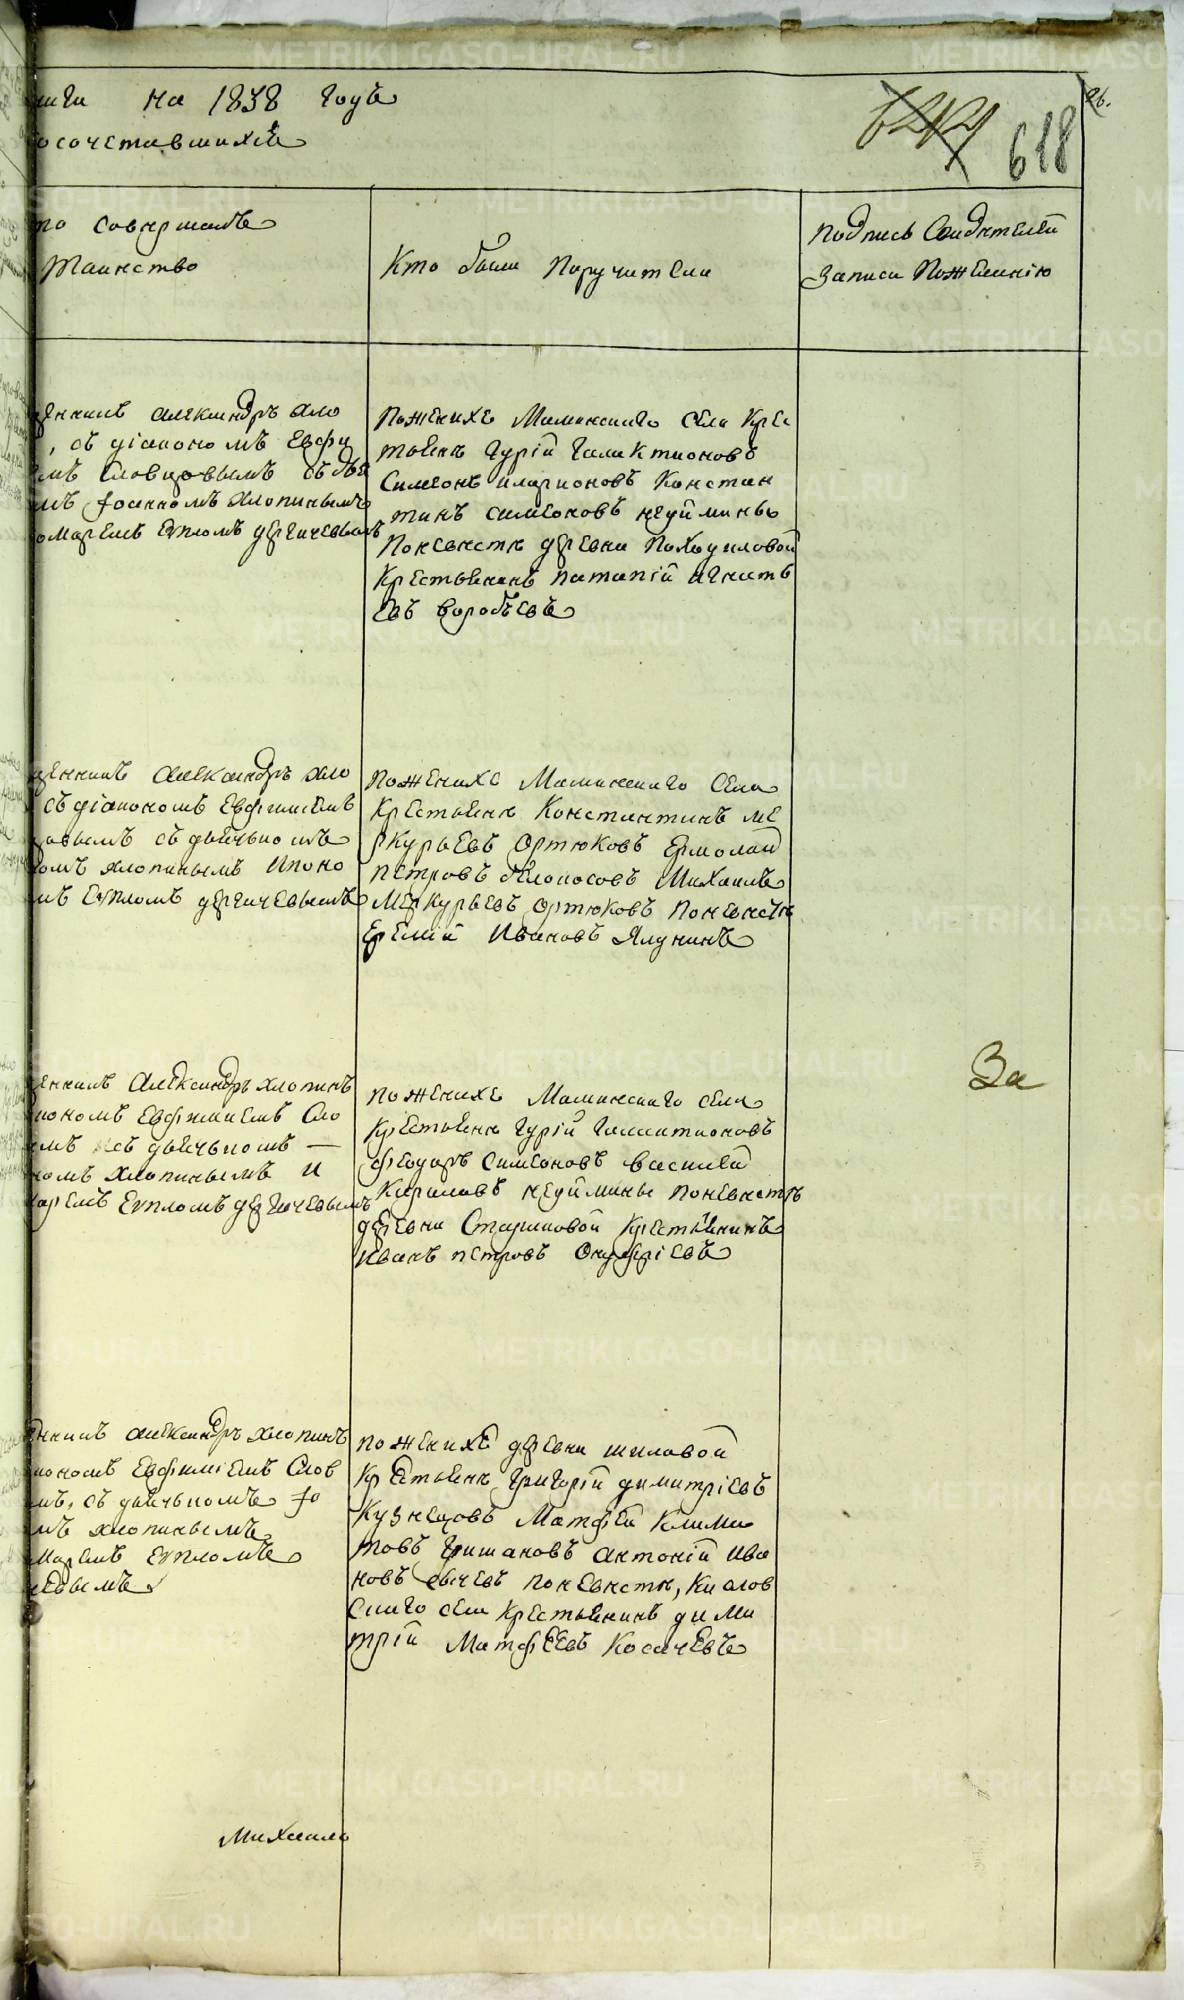 ниги на 1838 годъ
26.
618
осочетавшихся
то совершалъ
Таинство
Кто были Поручители
подпись Свидѣтелей
Записи Пожеланію
щенникъ Александръ Хло
, съ діакономъ Евфи
емъ Словцовымъ съ дья
мъ Іоанномъ Хлопинымъ
омаремъ Еѵпломъ дерячевымъ
Пожених​е Маминскаго села Кре
стьяне Гурій Галактионовъ
Симеонъ иларионовъ Констан
тинъ симеоновъ недймины
Поневестѣ деревни Походиловой
Крестьянинъ патапій игнать
евъ воробьевъ
щенникъ Александръ хло
съ діакономъ Евфимиемъ
цовымъ съ дьячькомъ
омъ хлопинымъ Ипоно
мъ Еѵпломъ дерячевымъ
поженихе Маминскаго села
Крестьяне Константинъ ме
ркурьевъ Ортюковъ Ермолай
петровъ бѣлоносовъ Михаилъ
Меркурьевъ Ортюковъ поневѣстѣ
Еремій Ивановъ Ялунинъ
щенникъ Александръ хлопинъ
иакономъ Евфимиемъ Сло
емъ съ дьячькомъ —
номъ хлопинымъ и
маремъ Еѵпломъ дерячевымъ
поженихе Маминскаго села
Крестьяне гурій галактионовъ
феодоръ симеоновъ василей
Кириловъ недймины поневестѣ
деревни Стариковой Крестьянинъ
Иванъ петровъ Онуфріевъ
За
щенникъ Александръ хлопинъ
иакономъ Евфиміемъ Слов
мъ, съ дьячькомъ Іо
мъ хлопинымъ
Маремъ Еѵпломъ
чевымъ
поженихе деревни шиловой
Крестьяне Григорій димитріевъ
Кузнецовъ Матфей Клими
товъ Гришановъ антоній Ива
новъ сычевъ поневестѣ, Кисловъ
скаго села Крестьянинъ дими
трій Матфеевъ Косачевъ
Михаилъ
METRIKI.GASO-URAL.RU